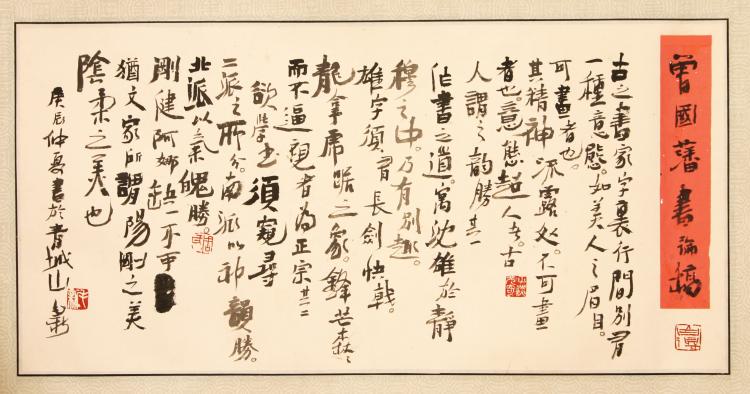 曾國藩書論摘
古之書家字裏行間別有
一種意態。如美人之眉目。
可畫者也。
其精神流露处。不可畫
者也。意態超人者。古
人謂之韵勝 其一
作書之道。寓沈雄於静
穆之中。乃有别趣。
雄字須有長劍快戟。
龍拿虎踞之象。鋒芒森森
而不逼視者為正宗 其二
欲學書須窺尋
二派之所分。南派以神韻勝。
北派以氣魄勝。
剛健阿娜缺一不可
猶文家所謂陽剛之美
陰柔之美也
庚辰仲夏書於青城山